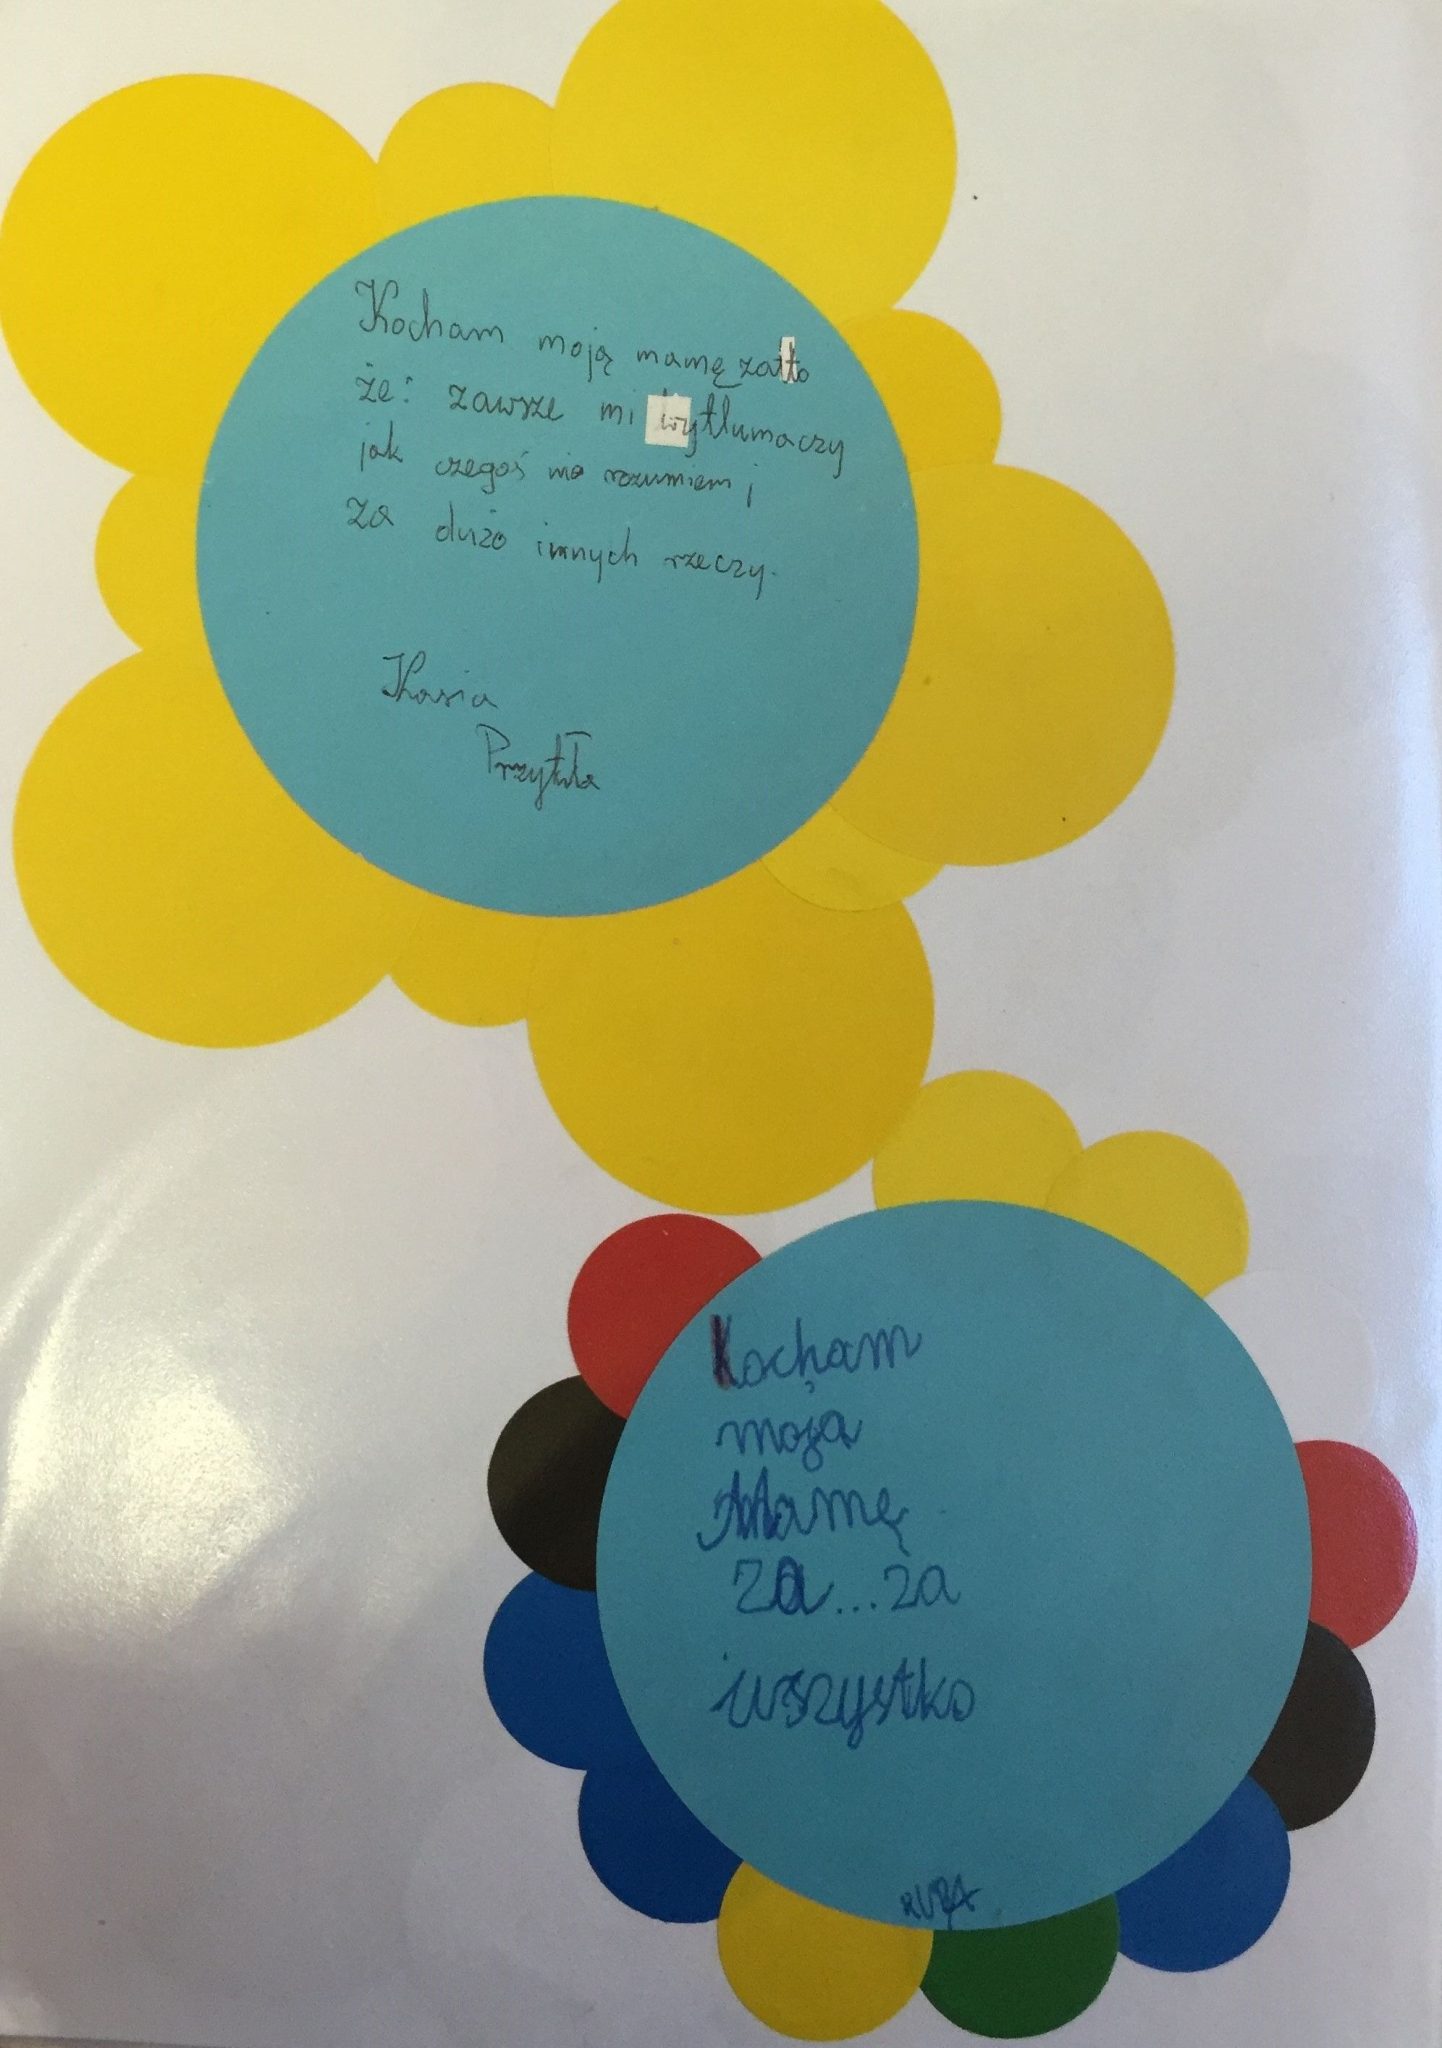 Kocham moją mamę za to
że: zawsze mi wytłumaczy
jak czegoś nie rozumiem i
za dużo innych rzeczy.
Kasia
Przytuła
Kocham
moją
Mamę
za...za
wszystko